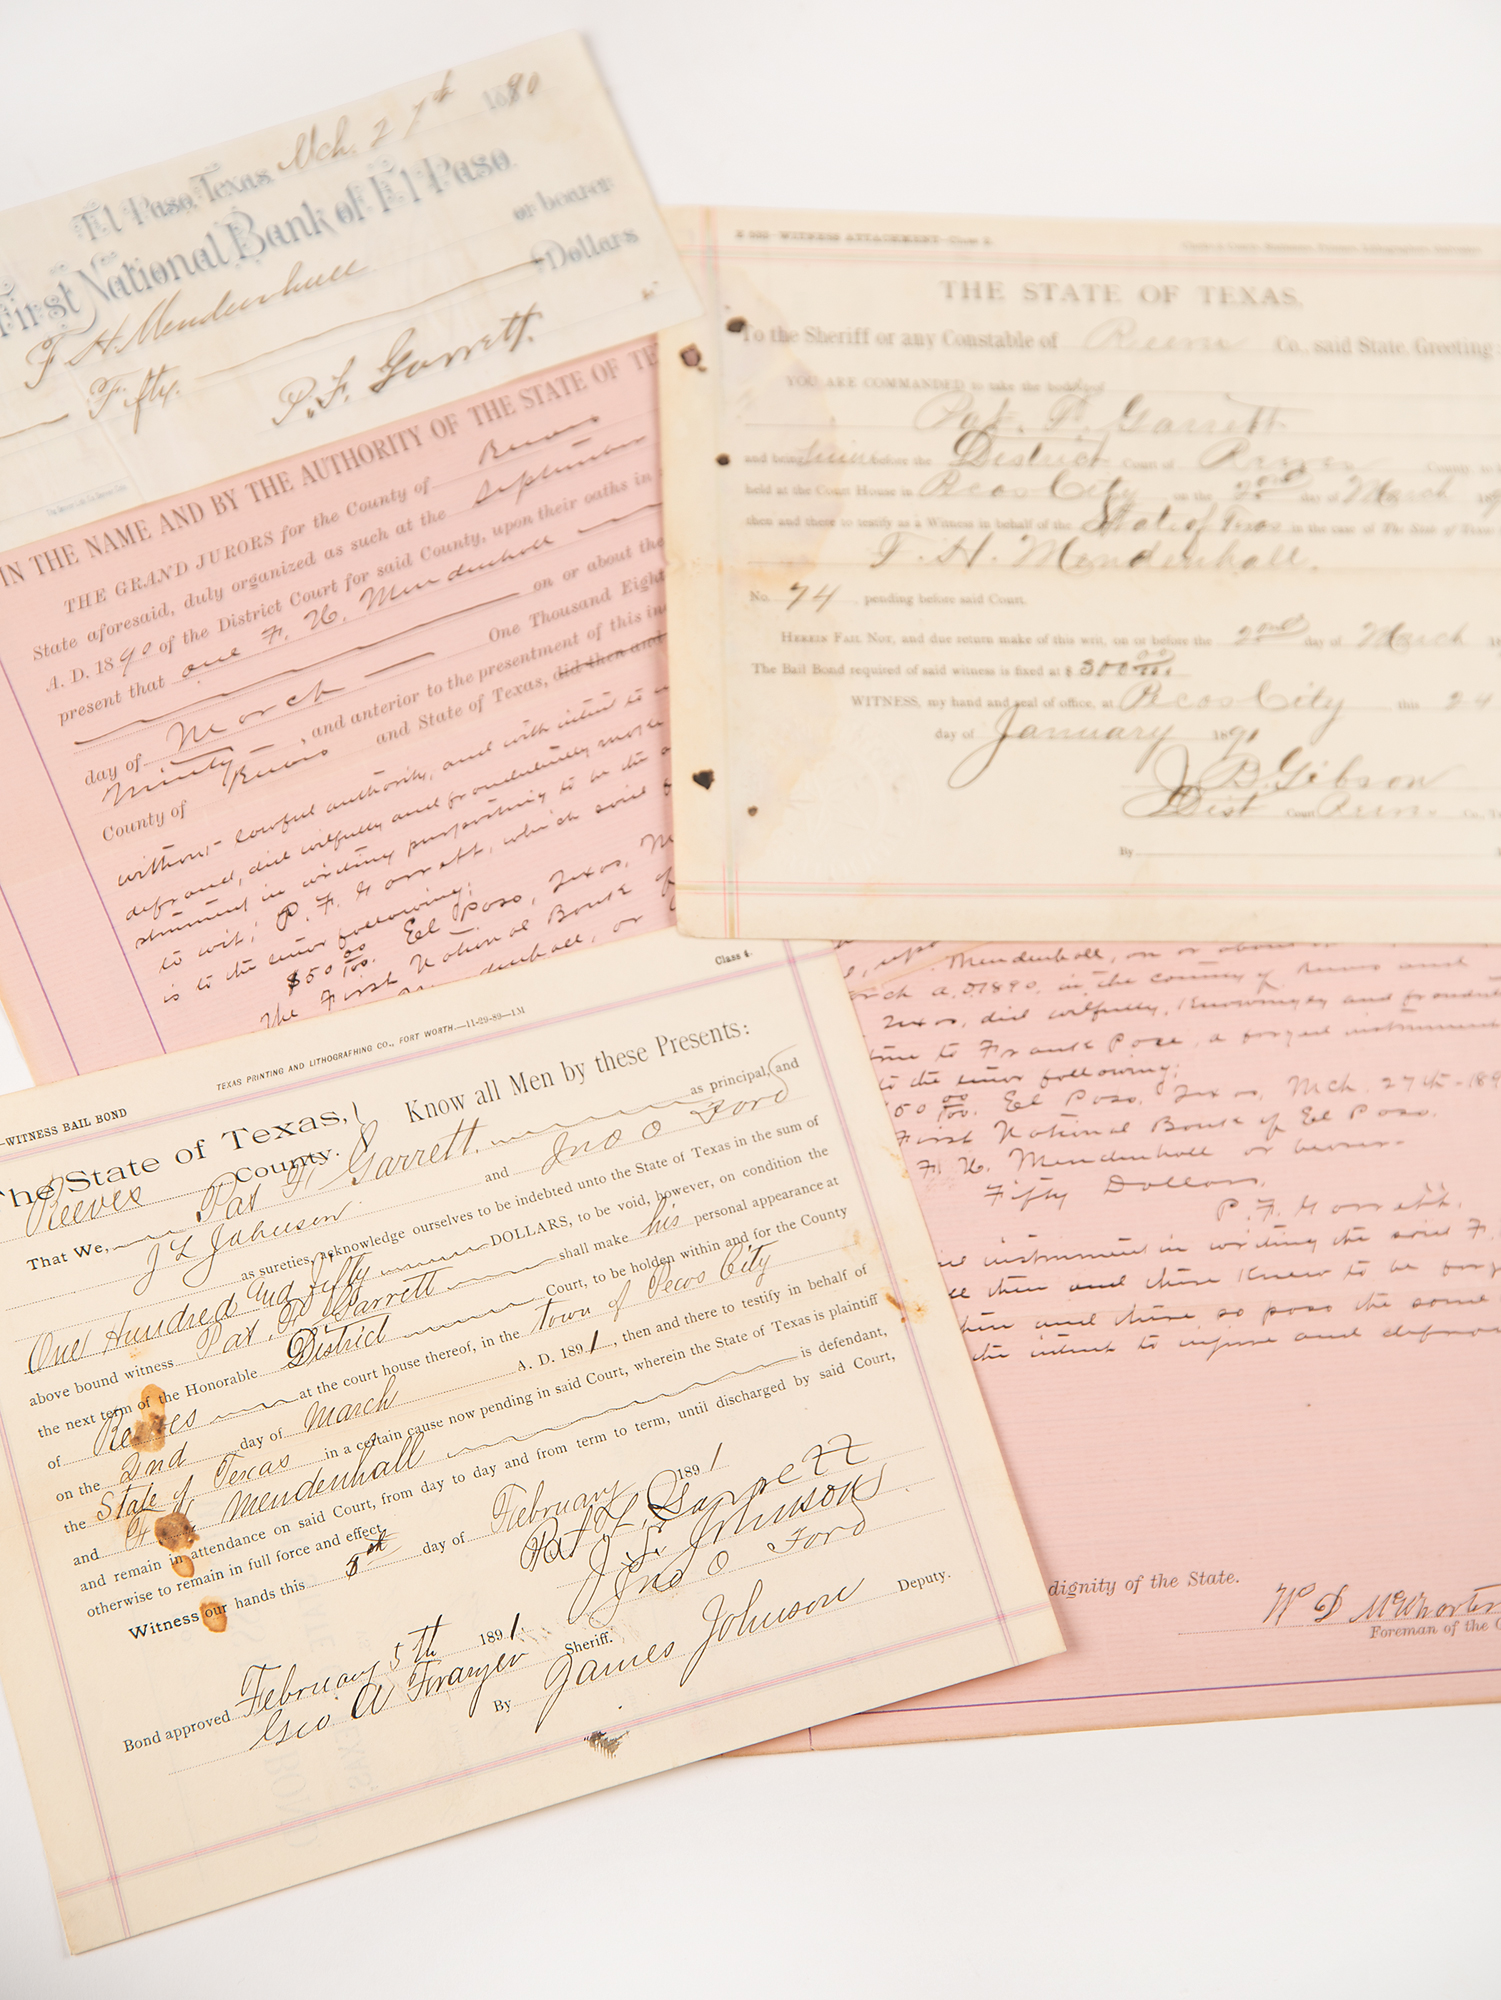 El Paso, Texas Mch. 27th 1890
First National Bank of El Paso
F H Mendenhall or bearer
Fifty Dollars
P. F. Garrett.
IN THE NAME AND BY THE AUTHORITY OF THE STATE OF TE
THE GRAND JURORS for the County of Reeves
State aforesaid, duly organized as such at the September
A. D. 1890 of the District Court for said County, upon their oaths in
present that one F. H. Mendenhall
on or about the
day of March One Thousand Eight
Ninety, and anterior to the presentment of this in
County of Reeves and State of Texas, did then and
without lawful authority, and with intent to
defraud, did wilfully and fraudulently make
strument in writing purporting to be the
to wit; P. F. Garrett, which said
is to the tenor following;
$50 00/100. El Paso, Texas, M
The First National Bank of
Mendenhall, or
WITNESS ATTACHMENT—Class
THE STATE OF TEXAS,
To the Sheriff or any Constable of Reeves Co., said State, Greeting
YOU ARE COMMANDED to take the body of
Pat. F. Garrett
and being before the District Court of Reeves County, to
held at the Court House in Pecos City on the 2nd day of March 189
then and there to testify as a Witness in behalf of the State of Texas in the case of The State of Texas
F. H. Mendenhall.
No. 74, pending before said Court.
HEREIN FAIL NOT, and due return make of this writ, on or before the 2nd day of March 18
The Bail Bond required of said witness is fixed at $ 300 00/100.
WITNESS, my hand and seal of office, at Pecos City this 24
day of January 1891
J B. Gibson
Dist Court Reeves Co., T
By
Mendenhall, on or about
arch A.D. 1890, in the county of Reeves and
Texas, did wilfully, knowingly and fraudule
to Frank Pace, a forged instrument
to the tenor following;
$50 00/100. El Paso, Texas, Mch. 27th-189
First National Bank of El Paso.
F. H. Mendenhall or bearer-
Fifty Dollars,
P. F. Garrett.
instrument in writing the said F.
then and there knew to be forg
then and there so pass the same
the intent to injure and defrau
dignity of the State.
W D McWhorter
Foreman of the G
—WITNESS BAIL BOND
TEXAS PRINTING AND LITHOGRAFHING CO., FORT WORTH.—11-29-89—1M
Class 4.
The State of Texas,
Reeves County.
Know all Men by these Presents:
That We, Pat F Garrett. as principal, and
J L Johnson and Jno O Ford
as sureties, acknowledge ourselves to be indebted unto the State of Texas in the sum of
One Hundred and fifty DOLLARS, to be void, however, on condition the
above bound witness Pat. F. Garrett shall make his personal appearance at
the next term of the Honorable District Court, to be holden within and for the County
of Reeves at the court house thereof, in the town of Pecos City
on the 2nd day of March A. D. 1891, then and there to testify in behalf of
the State of Texas in a certain cause now pending in said Court, wherein the State of Texas is plaintiff
and F H Mendenhall is defendant,
and remain in attendance on said Court, from day to day and from term to term, until discharged by said Court,
otherwise to remain in full force and effect.
Witness our hands this 5th day of February 1891
Pat F. Garrett
J. L. Johnson
Jno O Ford
Bond approved February 5th 1891.
Geo A Frazer Sheriff.
By James Johnson Deputy.